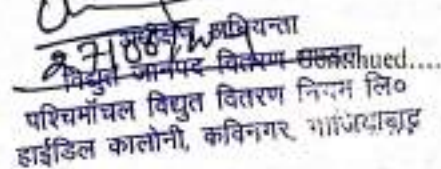 अधीक्षण अभियन्ता
विद्युत जानपद वितरण मण्डल nued....
पश्चिमाँचल विद्युत वितरण निगम लि०
हाईडिल कालोनी, कविनगर, गाजियाबाद